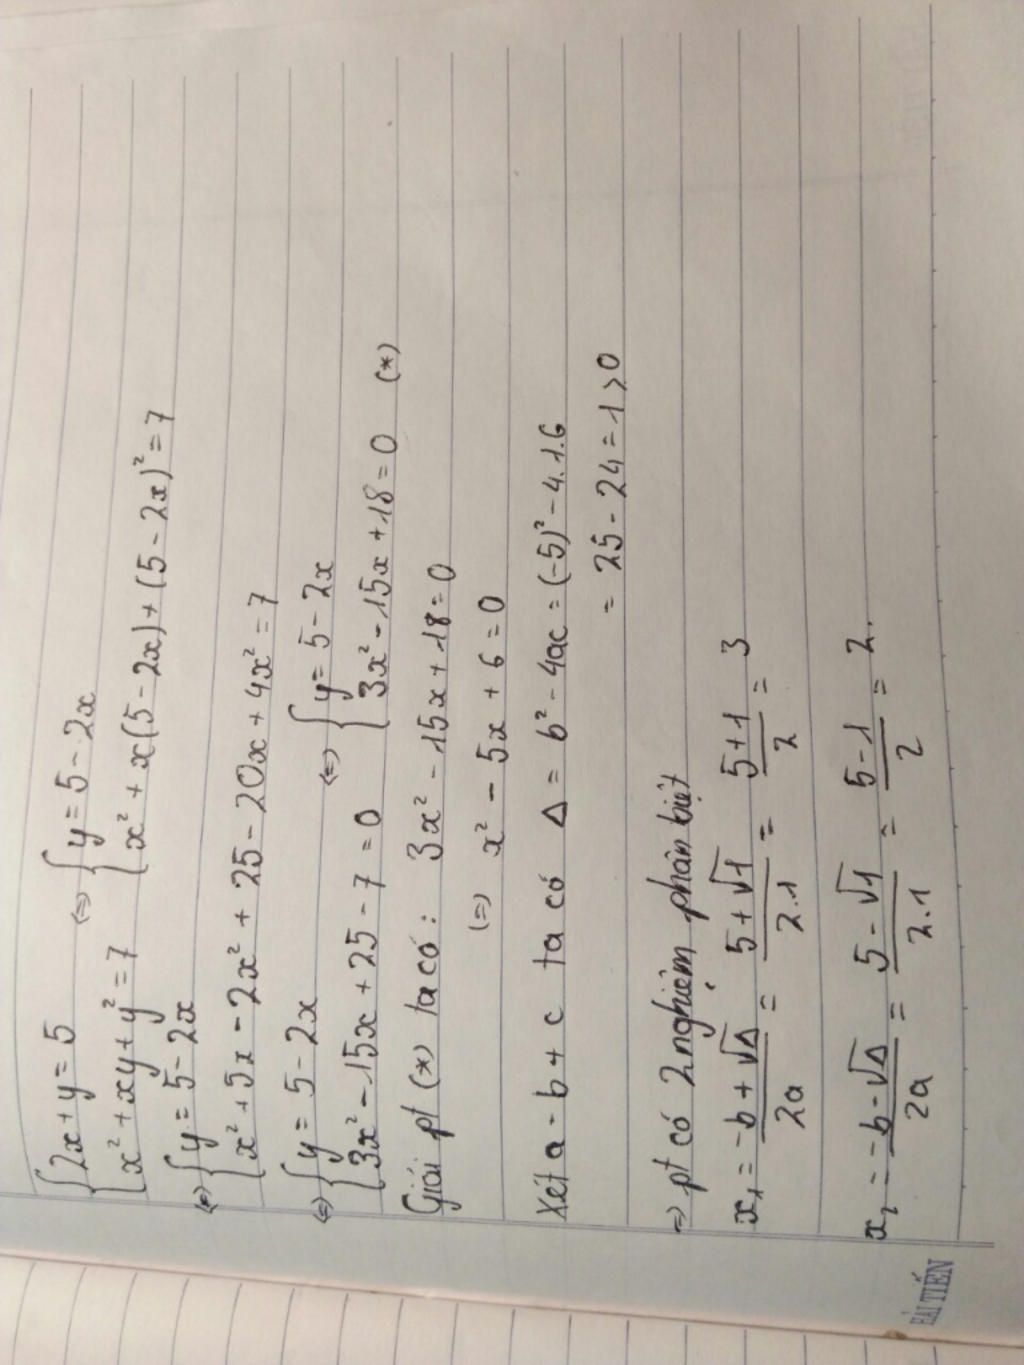 {2x+y=5 (=) {y=5-2x
{x²+xy+y²=7 {x²+x(5-2x)+(5-2x)²=7
(=) {y=5-2x
{x²+5x-2x²+25-20x+4x²=7
(=) {y=5-2x (=) {y=5-2x
{3x²-15x+25-7=0 {3x²-15x+18=0 (*)
Giải pt (*) ta có: 3x²-15x+18=0
(=) x²-5x+6=0
Xét a-b+c ta có Δ=b²-4ac=(-5)²-4.1.6
=25-24=1>0
=> pt có 2 nghiệm phân biệt
x₁=(-b+√Δ)/2a=(5+√1)/2.1=(5+1)/2=3
x₂=(-b-√Δ)/2a=(5-√1)/2.1=(5-1)/2=2.
HẢI TIẾN